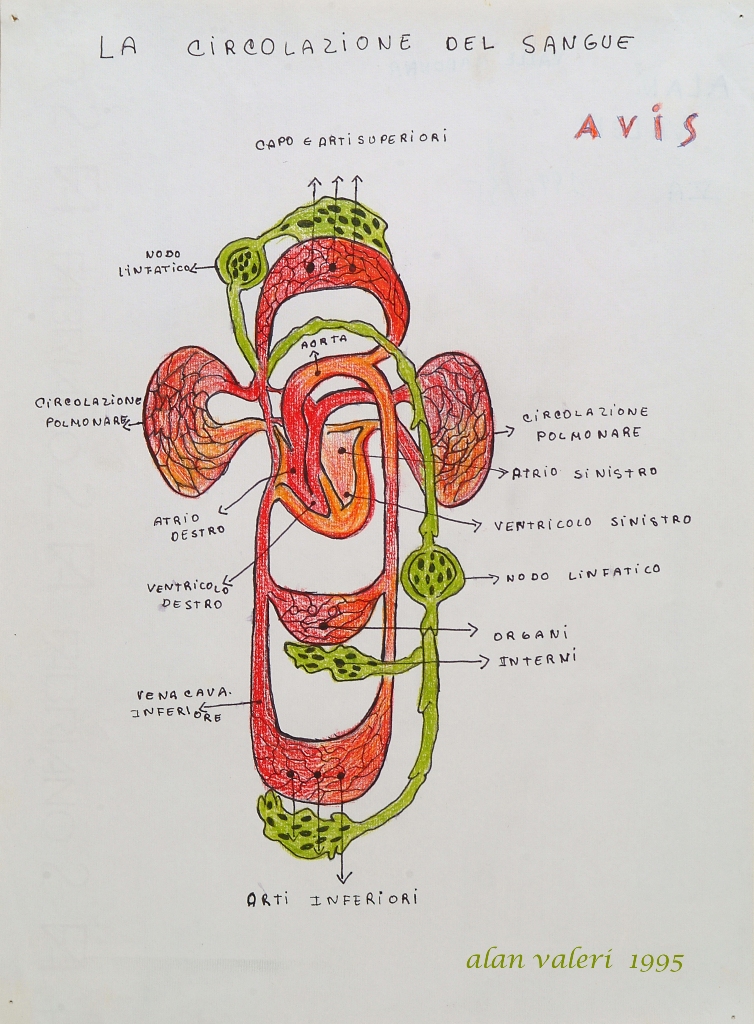 LA CIRCOLAZIONE DEL SANGUE
AVIS
CAPO E ARTI SUPERIORI
NODO
LINFATICO
AORTA
CIRCOLAZIONE
POLMONARE
CIRCOLAZIONE
POLMONARE
ATRIO SINISTRO
ATRIO
DESTRO
VENTRICOLO SINISTRO
VENTRICOLO
DESTRO
NODO LINFATICO
ORGANI
INTERNI
VENA CAVA.
INFERIORE
ARTI INFERIORI
alan valeri 1995